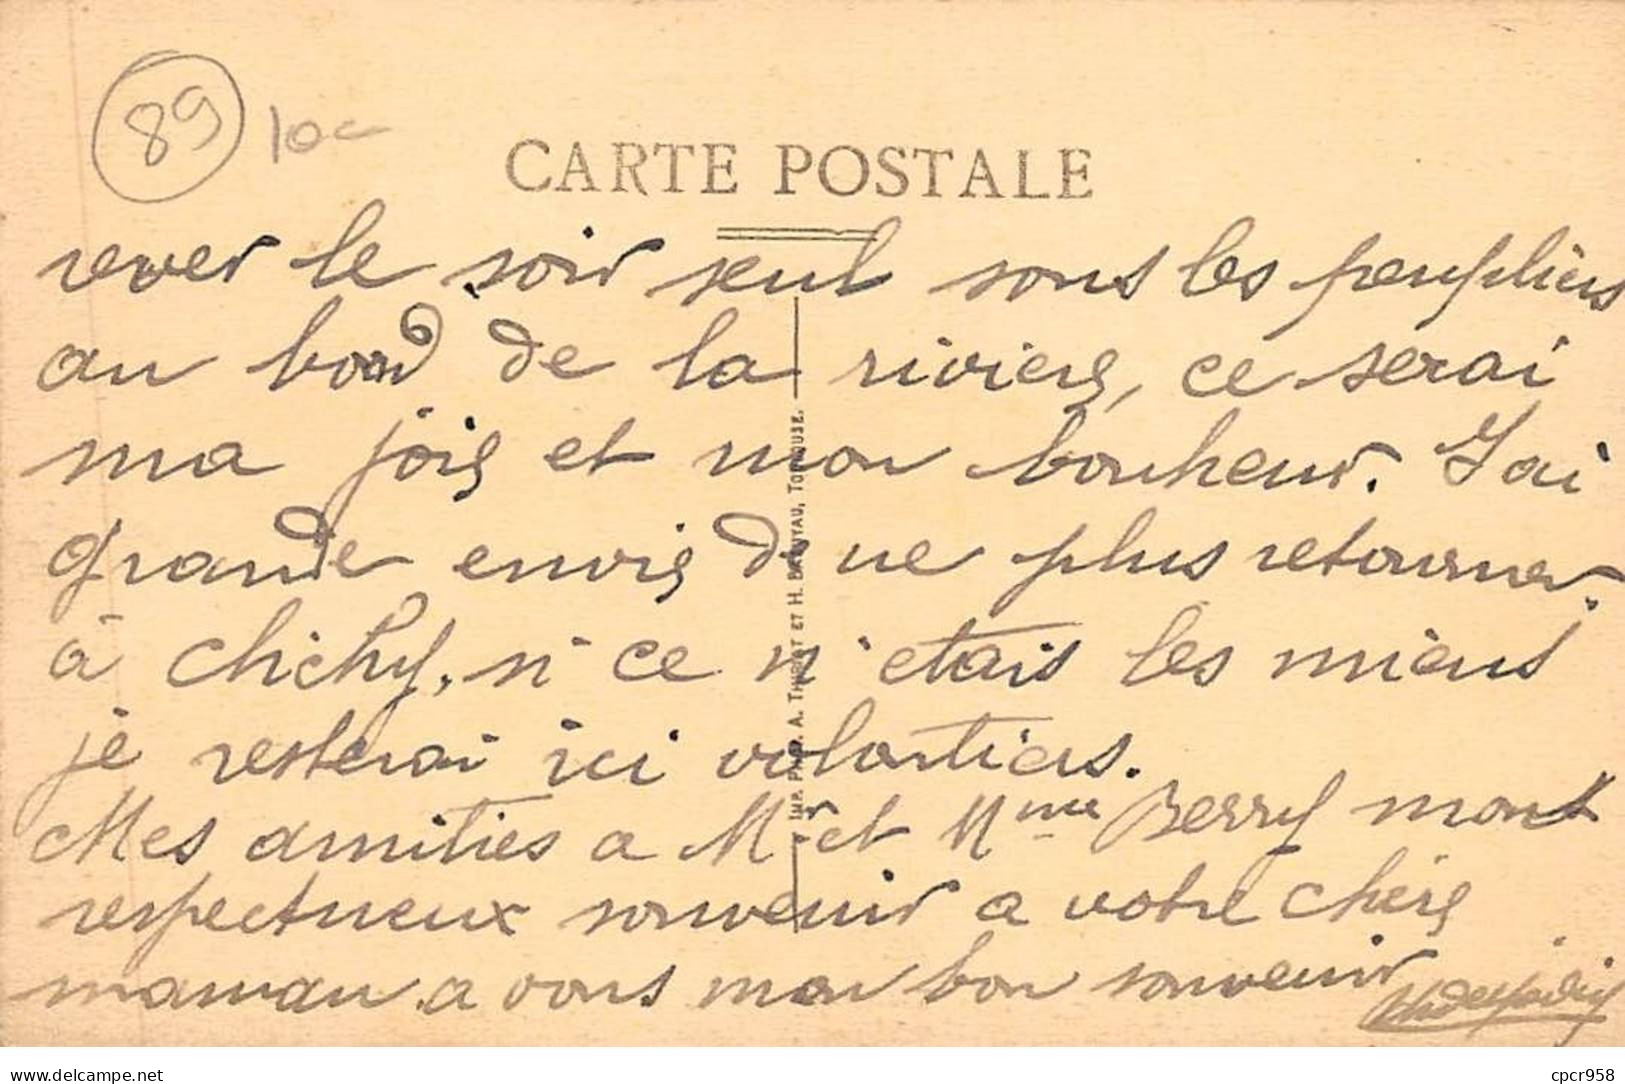 89 10c
CARTE POSTALE
rever le soir seul sous les peupliers
au bord de la riviere, ce serai
ma joie et mon bonheur. J'ai
grande envie de ne plus retourner
à Clichy, si ce n'etais les miens
je resterai ici volontiers.
Mes amities a Mr et Mme Berry mont
respectueux souvenir a votre chère
maman a vous mon bon souvenir
IMP. PHOT. A. THIRIOT ET H. BASUYAU, TOULOUSE.
cpcr958